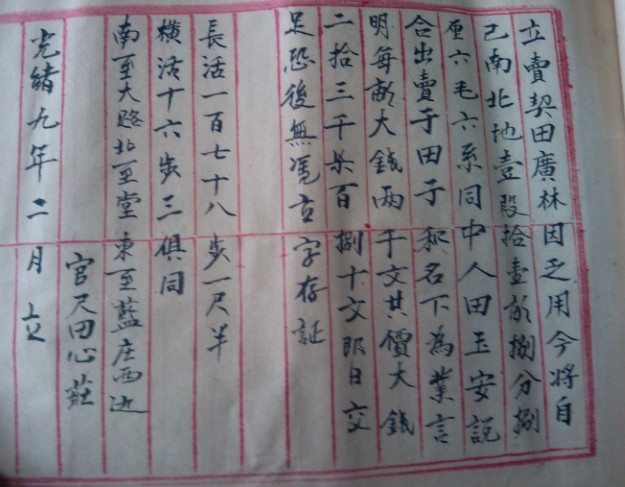 立賣契田廣林因乏用今将自
己南北地壹段拾壹畝捌分捌
厘六毛六系同中人田玉安説
合出賣于田于和名下為業言
明每畝大錢兩千文共價大錢
二拾三千柒百捌十文即日交
足恐後無憑立字存証
長活一百七十八步一尺半
橫活十六步三俱同
南至大路北至堂東至藍庄西至
官尺田心莊
光緒九年二月 立